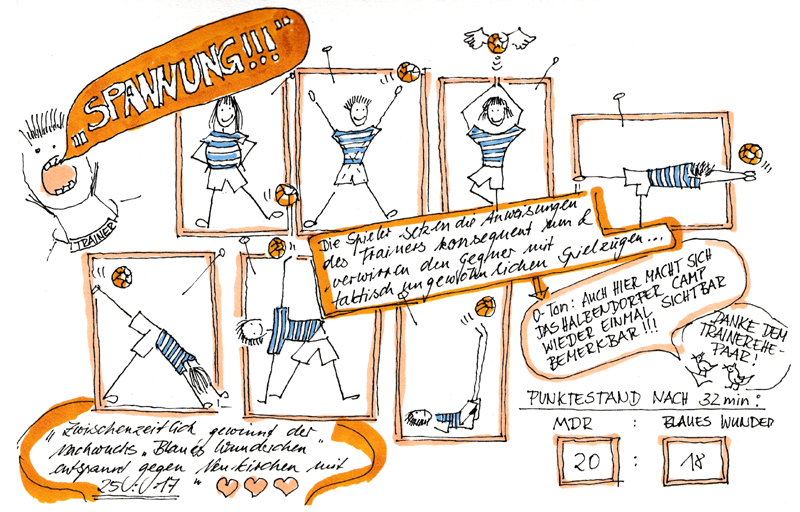 "...SPANNUNG!!!"
TRAINER
Die Spieler setzen die Anweisungen
des Trainers konsequent um &
verwirren den Gegner mit
taktisch ungewöhnlichen Spielzügen...
O-Ton: AUCH HIER MACHT SICH
DAS HALBENDORFER CAMP
WIEDER EINMAL SICHTBAR
BEMERKBAR!!!
DANKE DEM
TRAINEREHE-
PAAR!
"Zwischenzeitlich gewinnt der
Nachwuchs "Blaues Wunderchen"
entspannt gegen Neukirchen mit
25 : 17 "
PUNKTESTAND NACH 32min:
MDR : BLAUES WUNDER
20 : 18